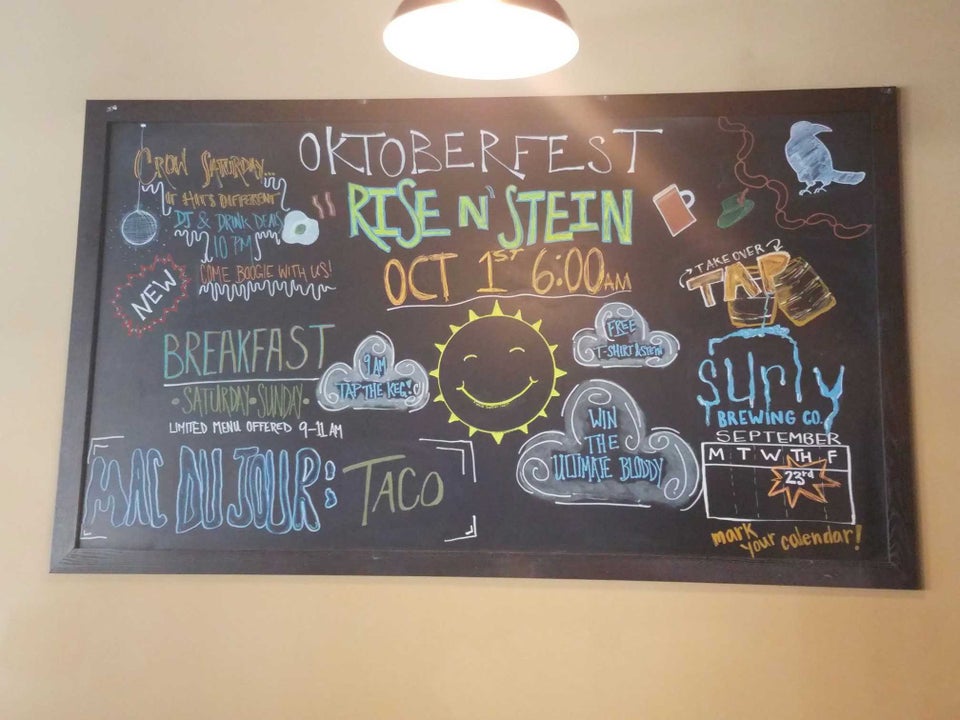 OKTOBERFEST
RISE N' STEIN
OCT 1ST 6:00AM
CROW SATURDAY...
IT HITS DIFFERENT
DJ & DRINK DEALS
10 PM
COME BOOGIE WITH US!
NEW
BREAKFAST
·SATURDAY·SUNDAY·
LIMITED MENU OFFERED 9-11 AM
9 AM
TAP THE KEG!
FREE
T-SHIRT & STEIN
WIN
THE
ULTIMATE BLODDY
MAC DU JOUR:
TACO
TAKE OVER
TAP
SURLY
BREWING CO.
SEPTEMBER
M T W TH F
23rd
mark
your calendar!